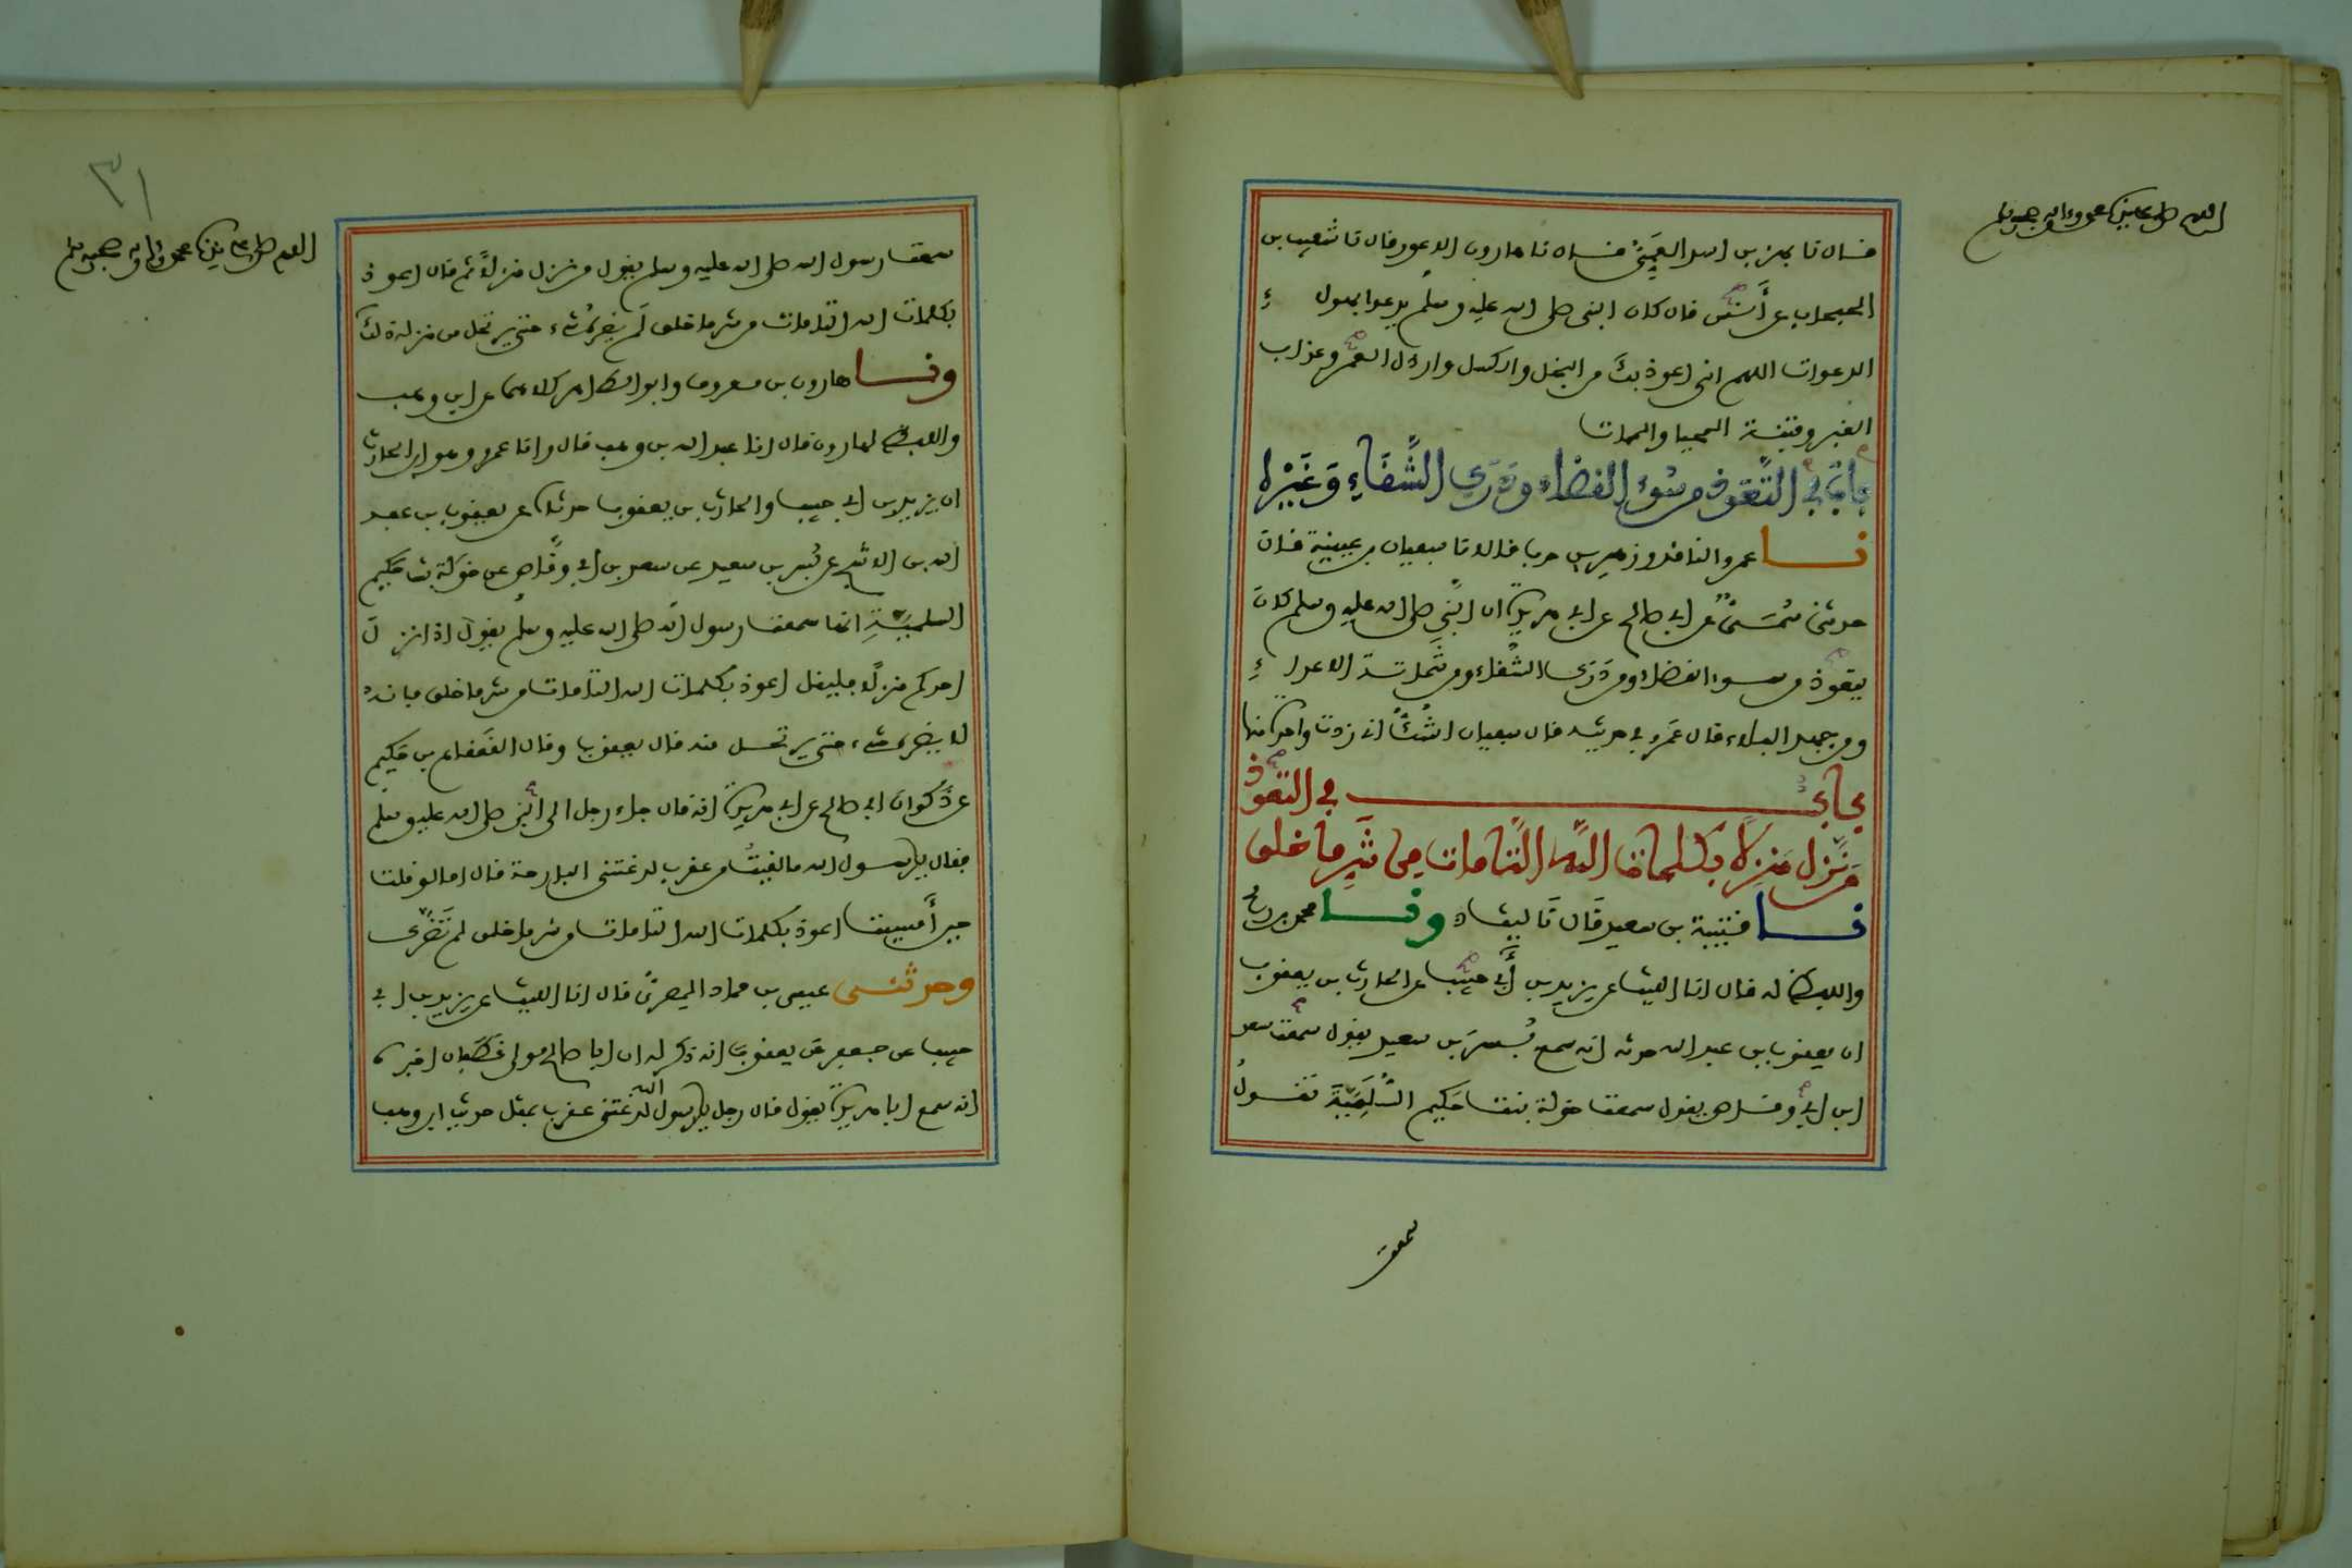 اللهم صل على سيدنا محمد وءاله وصحبه وسلم
فال نا بهز بن اسد العمى فال نا هارون الاعور فال نا شعيب بن
الحبحاب عن أنس فال كان النبى صلى الله عليه وسلم يدعوا بهولاء
الدعوات اللهم انى اعوذ بك من البخل والكسل وارذل العمر وعذاب
الفبر وفتنة المحيا والممات
باب في التعوذ من سوء الفضاء ودرك الشفاء وغيره
نا عمرو النافد وزهير بن حرب فالا نا سبعيان بن عيينة فال
حدثنى سمى عن ابي صالح عن ابي هريرة ان النبي صلى الله عليه وسلم كان
يتعوذ من سوء الفضاء ومن درك الشفاء ومن شماتة الاعداء
ومن جهد البلاء فال عمرو في حديثه فال سبعيان اشك انى زدت واحدة منها
باب في التعوذ
من نزل منزلا بكلمات الله التامات من شر ما خلق
نا فتيبة بن سعيد فال نا ليث ونا محمد بن رمح
واللبظ له فال انا الليث عن يزيد بن أبي حبيب عن الحارث بن يعفوب
ان يعفوب بن عبد الله حدثه انه سمع بسر بن سعيد يفول سمعت سعد
ابن ابي وفاص يفول سمعت خولة بنت حكيم السلمية تفول
سمعت
٣١
اللهم صل على سيدنا محمد وءاله وصحبه وسلم
سمعت رسول الله صلى الله عليه وسلم يفول من نزل منزلا ثم فال اعوذ
بكلمات الله التامات من شر ما خلق لم يضره شيء حتى يرتحل من منزله ذلك
ونا هارون بن معروف وابو الطاهر كلاهما عن ابن وهب
واللبظ لهارون فال انا عبد الله بن وهب فال وانا عمرو وهو ابن الحارث
ان يزيد بن ابي حبيب والحارث بن يعفوب حدثاه عن يعفوب بن عبد
الله بن الاشج عن بسر بن سعيد عن سعد بن ابي وفاص عن خولة بنت حكيم
السلمية انها سمعت رسول الله صلى الله عليه وسلم يفول اذا نزل
احدكم منزلا فليفل اعوذ بكلمات الله التامات من شر ما خلق فانه
لا يضره شيء حتى يرتحل منه فال يعفوب وفال الفعفاع بن حكيم
عن ذكوان ابي صالح عن ابي هريرة انه فال جاء رجل الى النبي صلى الله عليه وسلم
ففال يا رسول الله ما لفيت من عفرب لدغتنى البارحة فال اما لو فلت
حين أمسيت اعوذ بكلمات الله التامات من شر ما خلق لم تضرك
وحدثنى عيسى بن حماد المصرى فال انا الليث عن يزيد بن ابي
حبيب عن جعفر عن يعفوب انه ذكر له ان ابا صالح مولى غطفان اخبره
انه سمع ابا هريرة يفول فال رجل يا رسول الله لدغتنى عفرب بمثل حديث ابن وهب